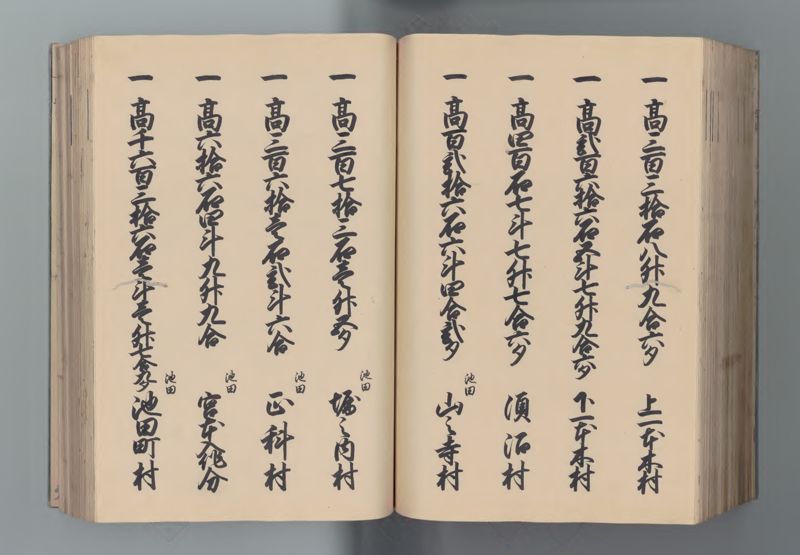 一 高三百三拾石八升九合六夕 上一本木村
一 高弐百六拾六石五斗七升九合六夕 下一本木村
一 高四百石七斗七升七合六夕 須沼村
一 高百弐拾六石六斗四合弐夕 池田 山之寺村
一 高三百七拾三石壱升五夕 池田 堀之内村
一 高三百六拾壱石弐斗六合 池田 正科村
一 高六拾六石四斗九升九合 池田 宮本作分
一 高千六百三拾六石壱斗壱升七合 池田町村